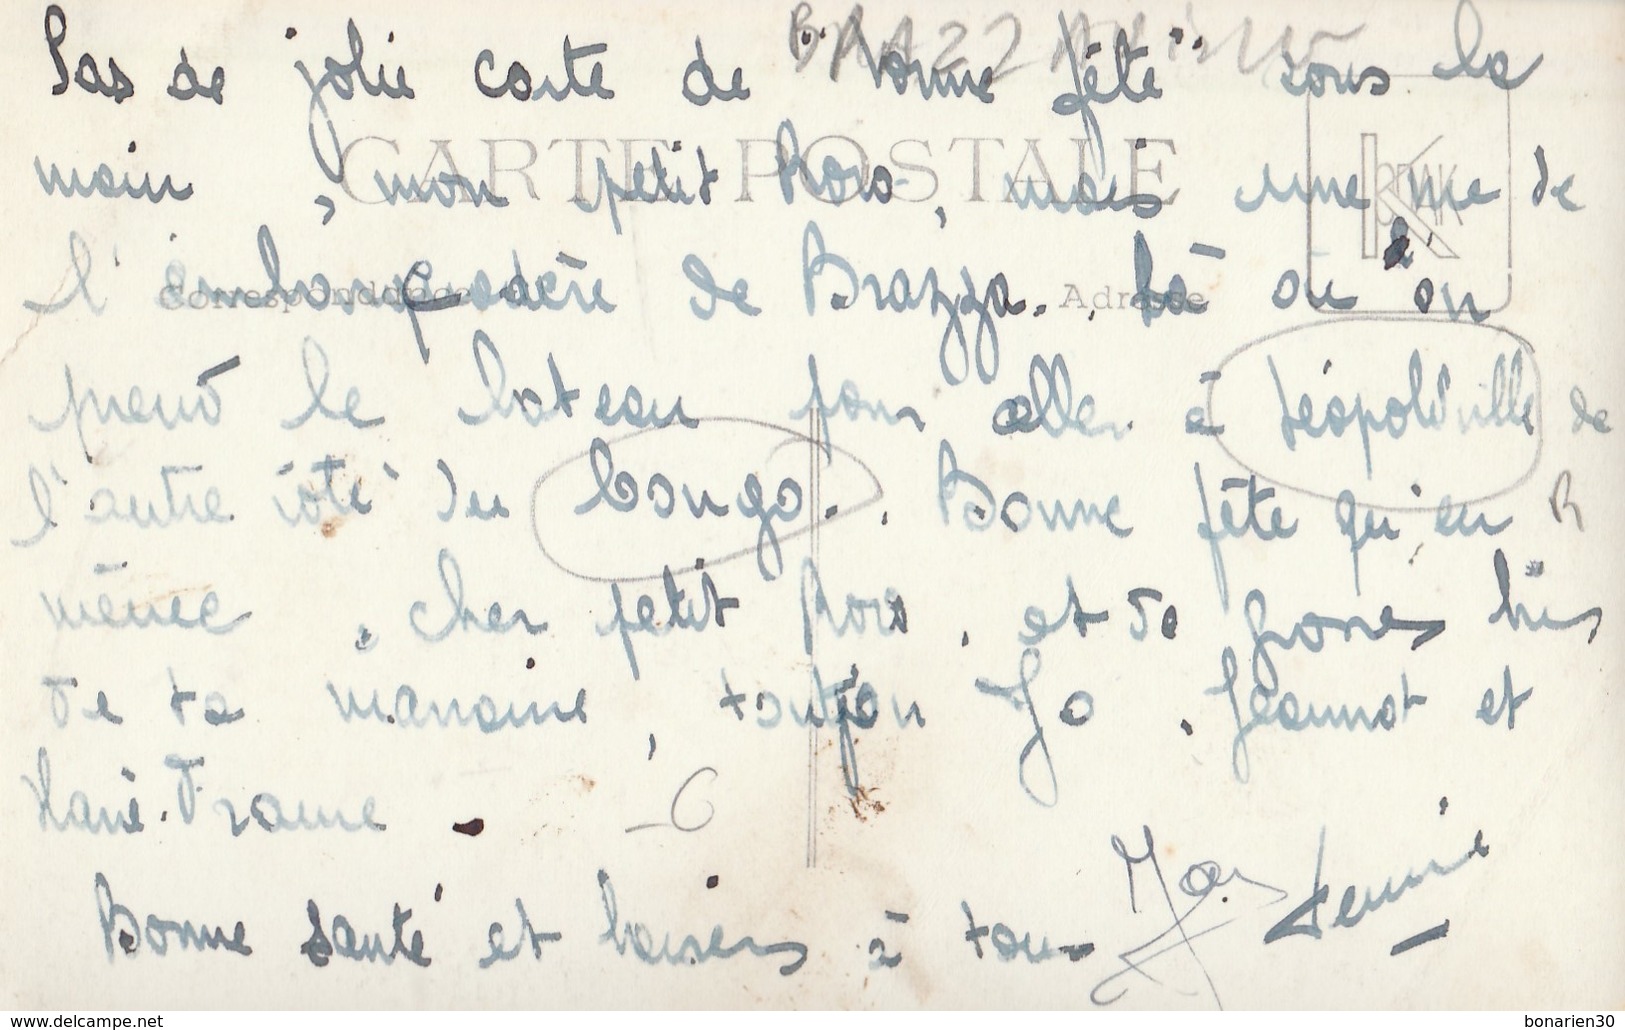 Pas de jolie carte de "bonne fête" sous la
CARTE POSTALE
main, mon petit Roro, mais une vue de
Correspondance
Adresse
l'embarcadère de Brazza. Là où l'on
prend le bateau pour aller à Léopoldville de
l'autre côté du Congo. Bonne fête qu'en
même, cher petit Roro, et de grosses bises
de ta marraine, tonton Jo, Jeannot et
Marie-France -
Bonne santé et baisers à tous
delcampe.net
bonarien30